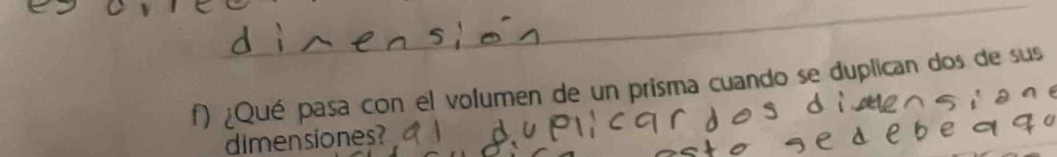 dimensión
f) ¿Qué pasa con el volumen de un prisma cuando se duplican dos de sus
dimensiones? al duplicar dos dimensione
esto se debe a qu